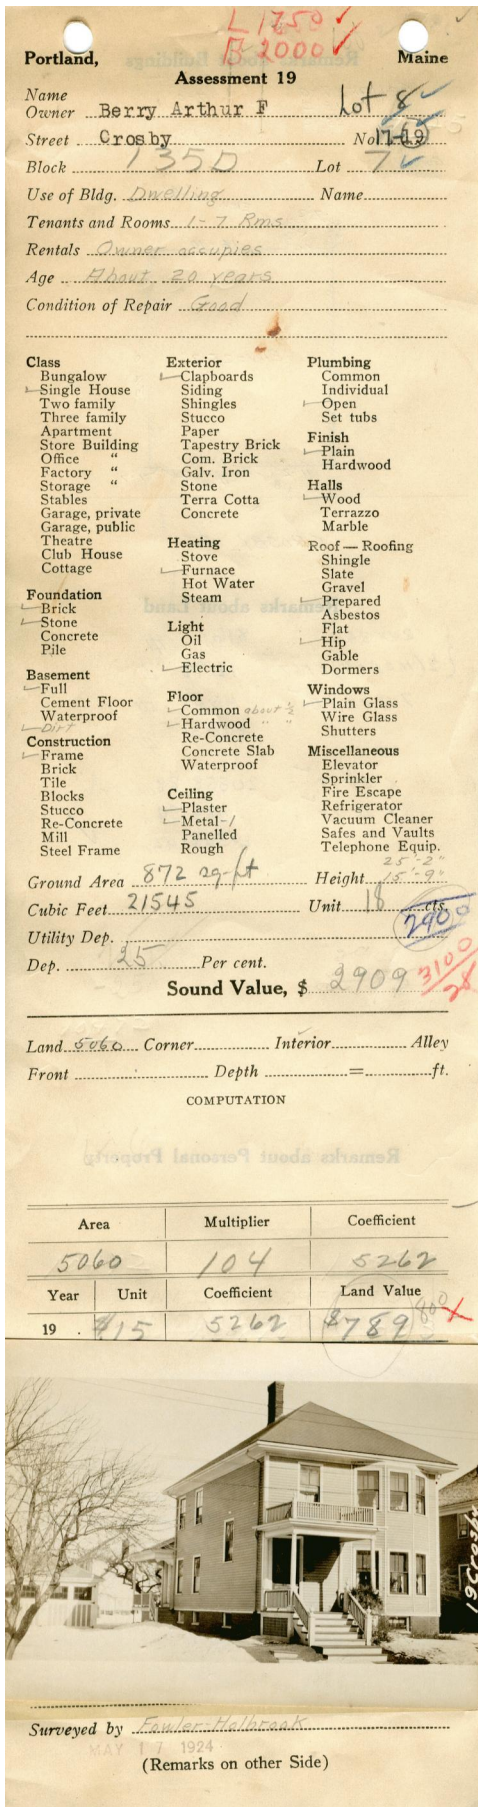 L 1750
B 2000
Portland, Maine
Assessment 19
Name
Owner Berry Arthur F Lot 8
Street Crosby No. 17-19
Block 135D Lot 7
Use of Bldg. Dwelling Name
Tenants and Rooms 1-7 Rms
Rentals Owner occupies
Age About 20 years
Condition of Repair Good
Class
Bungalow
Single House
Two family
Three family
Apartment
Store Building
Office "
Factory "
Storage "
Stables
Garage, private
Garage, public
Theatre
Club House
Cottage
Foundation
Brick
Stone
Concrete
Pile
Basement
Full
Cement Floor
Waterproof
Dirt
Construction
Frame
Brick
Tile
Blocks
Stucco
Re-Concrete
Mill
Steel Frame
Exterior
Clapboards
Siding
Shingles
Stucco
Paper
Tapestry Brick
Com. Brick
Galv. Iron
Stone
Terra Cotta
Concrete
Heating
Stove
Furnace
Hot Water
Steam
Light
Oil
Gas
Electric
Floor
Common about ½
Hardwood " "
Re-Concrete
Concrete Slab
Waterproof
Ceiling
Plaster
Metal-1
Panelled
Rough
Plumbing
Common
Individual
Open
Set tubs
Finish
Plain
Hardwood
Halls
Wood
Terrazzo
Marble
Roof — Roofing
Shingle
Slate
Gravel
Prepared
Asbestos
Flat
Hip
Gable
Dormers
Windows
Plain Glass
Wire Glass
Shutters
Miscellaneous
Elevator
Sprinkler
Fire Escape
Refrigerator
Vacuum Cleaner
Safes and Vaults
Telephone Equip.
25'-2"
Ground Area 872 sq-ft Height 15'-9"
Cubic Feet 21545 Unit 18 cts.
2900
Utility Dep.
Dep. 25 Per cent.
3100
28
Sound Value, $ 2909
Land 5060 Corner Interior Alley
Front Depth = ft.
COMPUTATION
Remarks about Personal Property
Area Multiplier Coefficient
5060 104 5262
Year Unit Coefficient Land Value
800
19 . $15 5262 $789
19 Crosby
Surveyed by Fowler-Holbrook
MAY 17 1924
(Remarks on other Side)